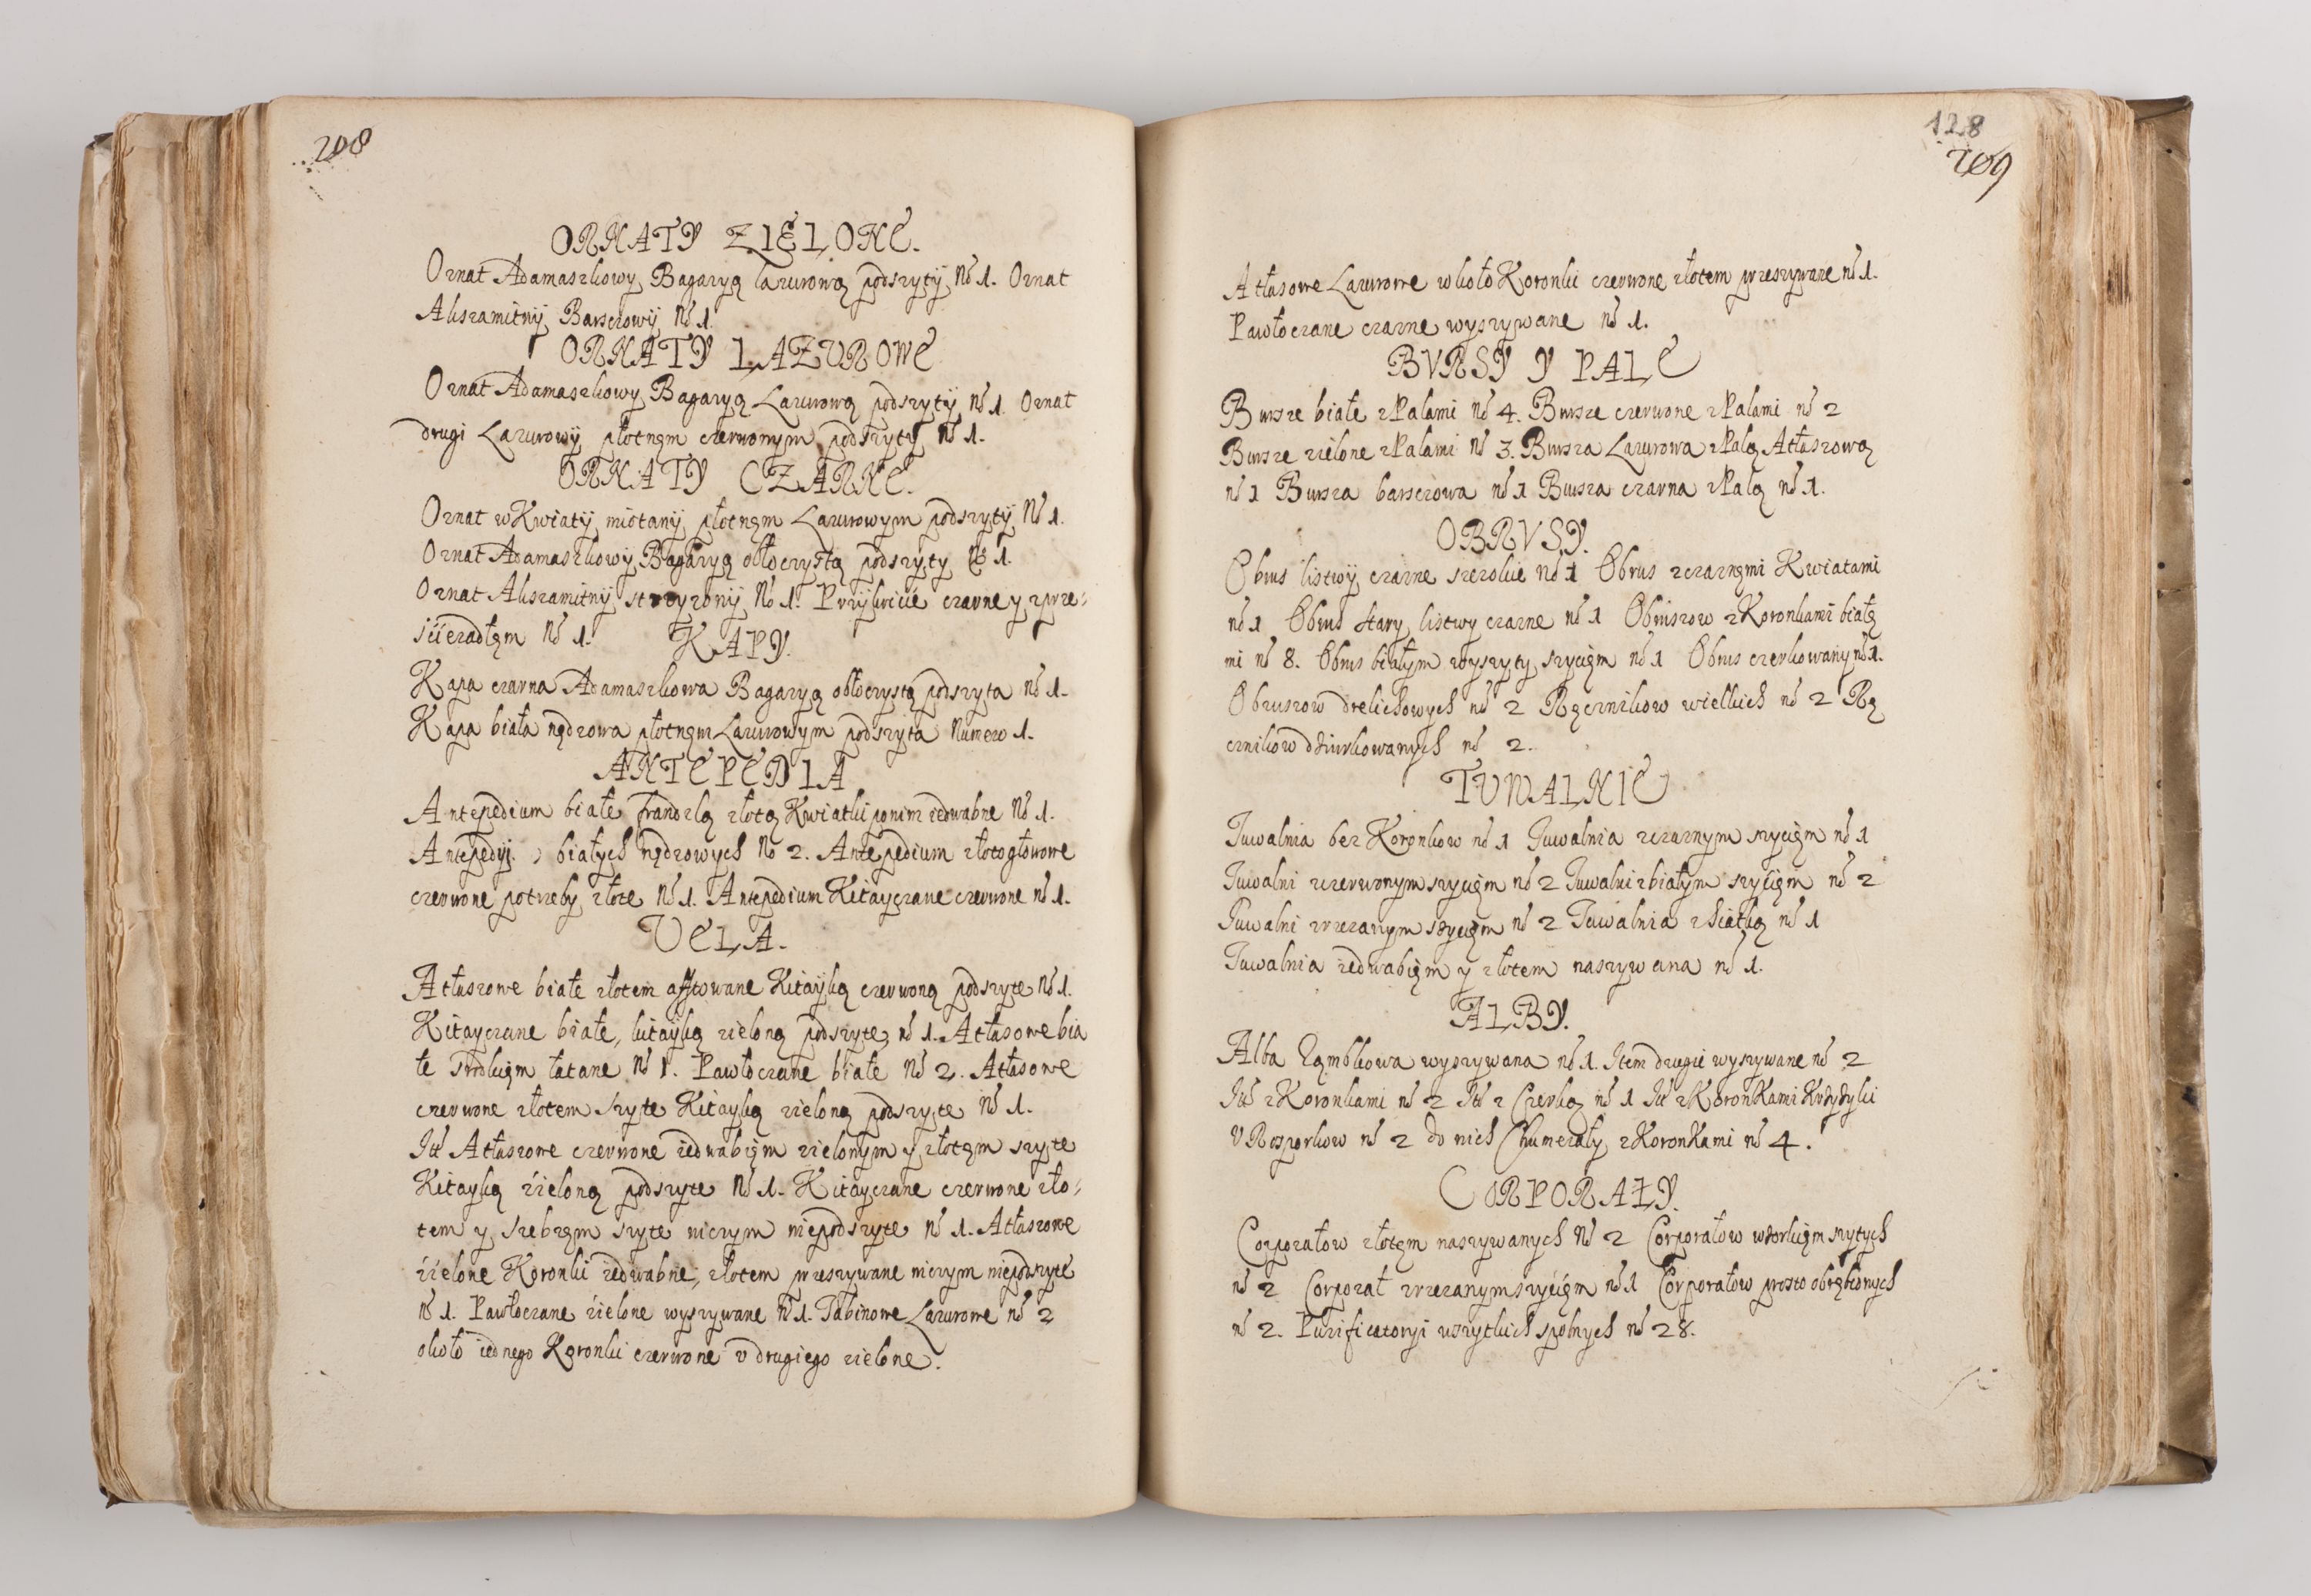 208
ORNATY ZIELONE.
Ornat Adamaszkowy Bagaryą lazurową podszyty No 1. Ornat
Akszamitny Barsczowy No 1.
ORNATY LAZUROWE
Ornat Adamaszkowy Bagaryą Lazurową podszyty No 1. Ornat
drugi Lazurowy płotnęm czerwonym podszyty No 1.
ORNATY CZARNE.
Ornat w Kwiaty miotany płotnęm Lazurowym podszyty No 1.
Ornat Adamaszkowy Bagaryą obłoczystą podszyty No 1.
Ornat Akszamitny strzyzony No 1. Przykricie czarne y zprze-
sćieradłęm No 1. KAPY.
Kapa czarna Adamaszkowa Bagaryą obłoczystą podszyta No 1.
Kapa biała nędzowa płotnęm Lazurowym podszyta Numero 1.
ANTEPEDIA
Antepedium białe frandzlą złotą Kwiatki ponim iedwabne No 1.
Antepedyi białych nędzowych No 2. Antepedium złotogłowowe
czerwone potrzeby złote No 1. Antepedium Kitayczane czerwone No 1.
VELA.
Atłaszowe białe złotem afftowane Kitayką czerwoną podszyte No 1.
Kitayczane białe, kitayką zieloną podszyte No 1. Atłasowe bia
łe łatane No 1. Pawłoczane białe No 2. Atłasowe
czerwone złotem szyte Kitayką zieloną podszyte No 1.
Itt Atłaszowe czerwone iedwabięm zielonym y złotęm szyte
Kitayką źieloną podszyte No 1. Kitayczane czerwone zło-
tem y srebręm szyte niczym niepodszyte No 1. Atłaszowe
źielone Koronki iedwabne, złotem przeszywane niczym niepodszyte
No 1. Pawłoczane źielone wyszywane No 1. Tabinowe Lazurowe No 2
około iednego Koronki czerwone v drugiego zielone.
128
209
Atłasowe Lazurowe wkoło Koronki czerwone złotem przeszywane No 1.
Pawłoczane czarne wyszywane No 1.
BVRSY Y PALE
Bursze białe zPalami No 4. Bursze czerwone zPalami No 2
Bursze zielone zPalami No 3. Bursza Lazurowa zPalą Atłaszową
No 1 Bursza barsczowa No 1 Bursza czarna zPalą No 1.
OBRVSY.
Obrus listwy czarne szerokie No 1 Obrus zczarnęmi Kwiatami
No 1 Obrus stary listwy czarne No 1 Obruszow zKoronkami białę
mi No 8. Obrus białym wyszyty szycięm No 1 Obrus czerkowany No 1.
Obruszow drelichowych No 2 Ręcznikow wielkich No 2 Rę
cznikow dziurkowanych No 2.
TVWALNIE
Tuwalnia bez Koronkow No 1 Tuwalnia zczarnym szycięm No 1
Tuwalni zczerwonym szycięm No 2 Tuwalni zbiałym szycięm No 2
Tuwalni zrzezanym szycięm No 2 Tuwalnia zsiatką No 1
Tuwalnia iedwabięm y złotem naszywana No 1.
ALBY.
Alba Rąmbkowa wyszywana No 1. Item drugie wyszywane No 2
Itt zKoronkami No 2 Itt z Czerką No 1 Itt zKoronKami
V Rozporkow No 2 do nich Chumerały zKoronKami No 4.
CORPORAŁY.
Corporałow złotęm naszywanych No 2 Corporałow szytych
No 2 Corporał zrzezanym szyćięm No 1 Corporałow prosto obrębionych
No 2. Purificatoryi wszytkich spolnych No 28.